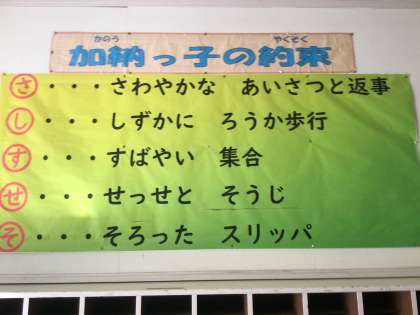 かのう やくそく
加納っ子の約束
さ・・・さわやかな あいさつと返事
し・・・しずかに ろうか歩行
す・・・すばやい 集合
せ・・・せっせと そうじ
そ・・・そろった スリッパ